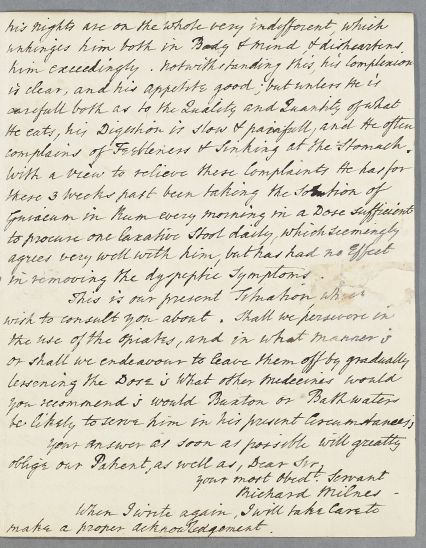 his nights are on the whole very indifferent, which
unhinges him both in Body & Mind, & disheartens
him exceedingly. Notwithstanding this, his Complexion
is clear, and his appetite good; but unless He is
carefull both as to the Quality and Quantity of what
He eats, his Digestion is slow & painfull, and He often
complains of Feebleness & Sinking at the Stomach.
With a view to relieve these Complaints He has for
these 3 weeks past been taking the Solution of
Guaiacum in Rum every morning in a Dose sufficient
to procure one laxative Stool daily, which seemingly
agrees very well with him, but has had no Effect
in removing the dyspeptic Symptoms.
This is our present Situation which
wish to consult you about. Shall we persevere in
the use of the Opiates, and in what manner?
or shall we endeavour to leave them off by gradually
lessening the Dose? What other Medecines would
you recommend? would Buxton or Bath waters
be likely to serve him in his present Circumstances;
Your Answer as soon as possible will greatly
oblige our Patient, as well as, Dear Sir,
your most Obedt. Servant
Richard Milnes -
When I write again, I will take Care to
make a proper acknowledgement.